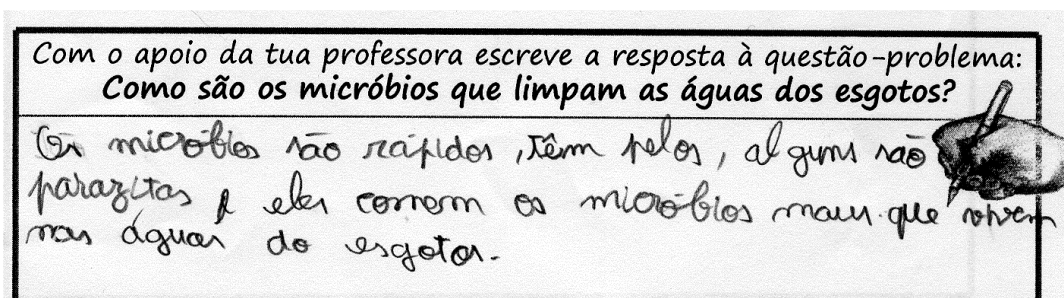 Com o apoio da tua professora escreve a resposta à questão-problema:
Como são os micróbios que limpam as águas dos esgotos?
Os micróbios são rápidos, têm pelos, alguns são
parazitas e eles comem os micróbios maus que vivem
nas águas do esgotos.